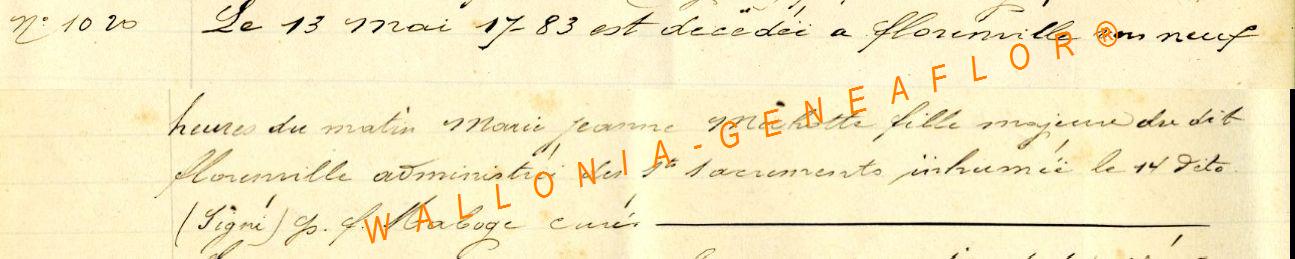 N° 1020 Le 13 Mai 1783 est décédéé a florenville neuf
heures du matin Marie jeanne Michotte fille majeure du dit
florenville administréé des Sts Sacrements inhuméé le 14 dito
(Signé) p. f. Maboge curé.
WALLONIA-GENEAFLOR®